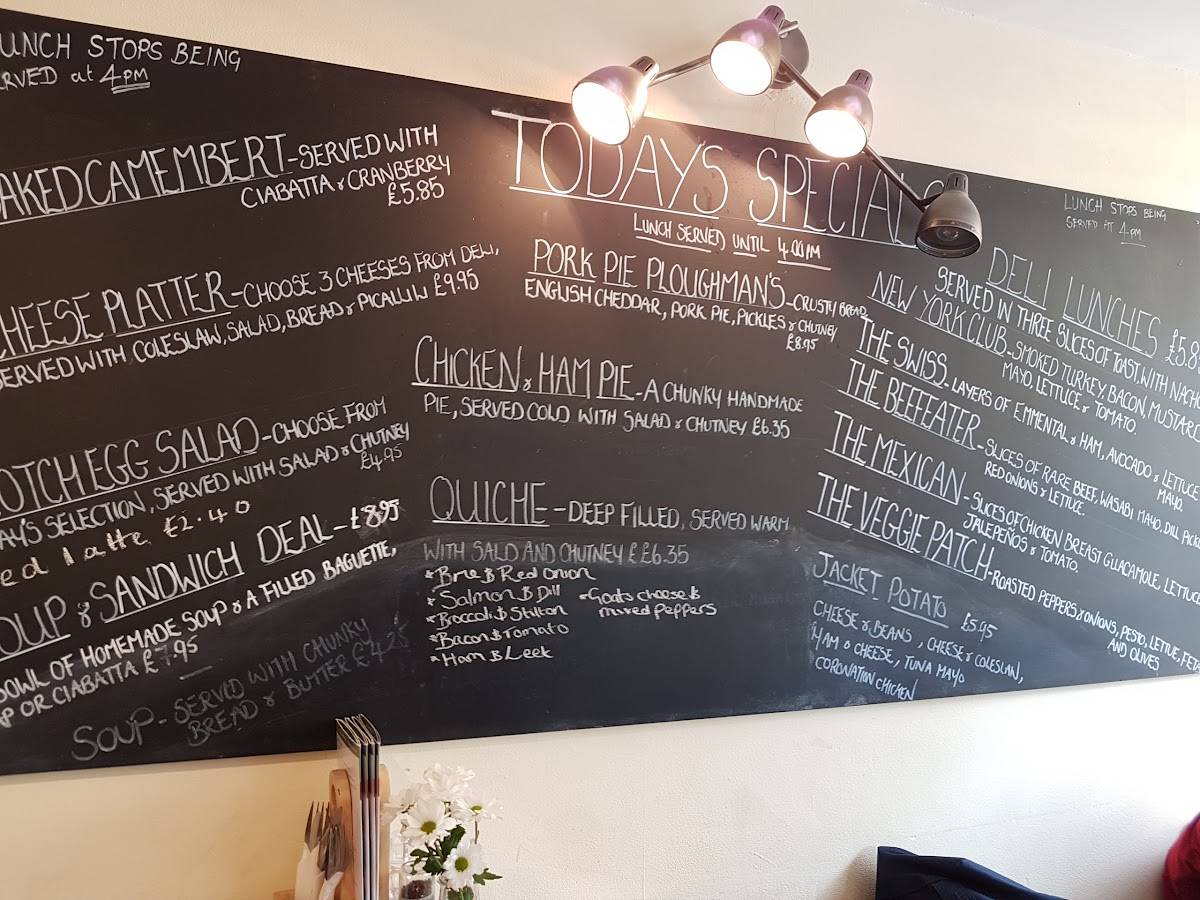 LUNCH STOPS BEING
SERVED at 4PM
BAKED CAMEMBERT - SERVED WITH
CIABATTA & CRANBERRY
£5.85
CHEESE PLATTER - CHOOSE 3 CHEESES FROM DELI,
SERVED WITH COLESLAW, SALAD, BREAD & PICALLILI £9.95
SCOTCH EGG SALAD - CHOOSE FROM
DAY'S SELECTION, SERVED WITH SALAD & CHUTNEY
£4.95
latte £2.40
SOUP & SANDWICH DEAL - £8.95
BOWL OF HOMEMADE SOUP & A FILLED BAGUETTE,
OR CIABATTA £7.95
SOUP - SERVED WITH CHUNKY
BREAD & BUTTER £4.25
TODAY'S SPECIALS
LUNCH SERVED UNTIL 4.00PM
PORK PIE PLOUGHMAN'S - CRUSTY BREAD,
ENGLISH CHEDDAR, PORK PIE, PICKLES & CHUTNEY
£8.95
CHICKEN & HAM PIE - A CHUNKY HANDMADE
PIE, SERVED COLD WITH SALAD & CHUTNEY £6.35
QUICHE - DEEP FILLED, SERVED WARM
WITH SALD AND CHUTNEY ££6.35
* Brie & Red Onion
* Salmon & Dill
* Broccoli & Stilton
* Bacon & Tomato
* Ham & Leek
* Goats cheese &
mixed peppers
LUNCH STOPS BEING
SERVED AT 4PM
DELI LUNCHES £5.8
SERVED IN THREE SLICES OF TOAST, WITH NACHO
NEW YORK CLUB - SMOKED TURKEY, BACON, MUSTARD
MAYO, LETTUCE & TOMATO.
THE SWISS - LAYERS OF EMMENTAL & HAM, AVOCADO & LETTUCE
MAYO.
THE BEEFEATER - SLICES OF RARE BEEF, WASABI MAYO, DILL PICKL
RED ONIONS & LETTUCE.
THE MEXICAN - SLICES OF CHICKEN BREAST GUACAMOLE, LETTUCE
JALEPEÑOS & TOMATO.
THE VEGGIE PATCH - ROASTED PEPPERS & ONIONS, PESTO, LETTUE, FETA
AND OLIVES
JACKET POTATO £5.95
CHEESE & BEANS, CHEESE & COLESLAW,
HAM & CHEESE, TUNA MAYO
CORONATION CHICKEN